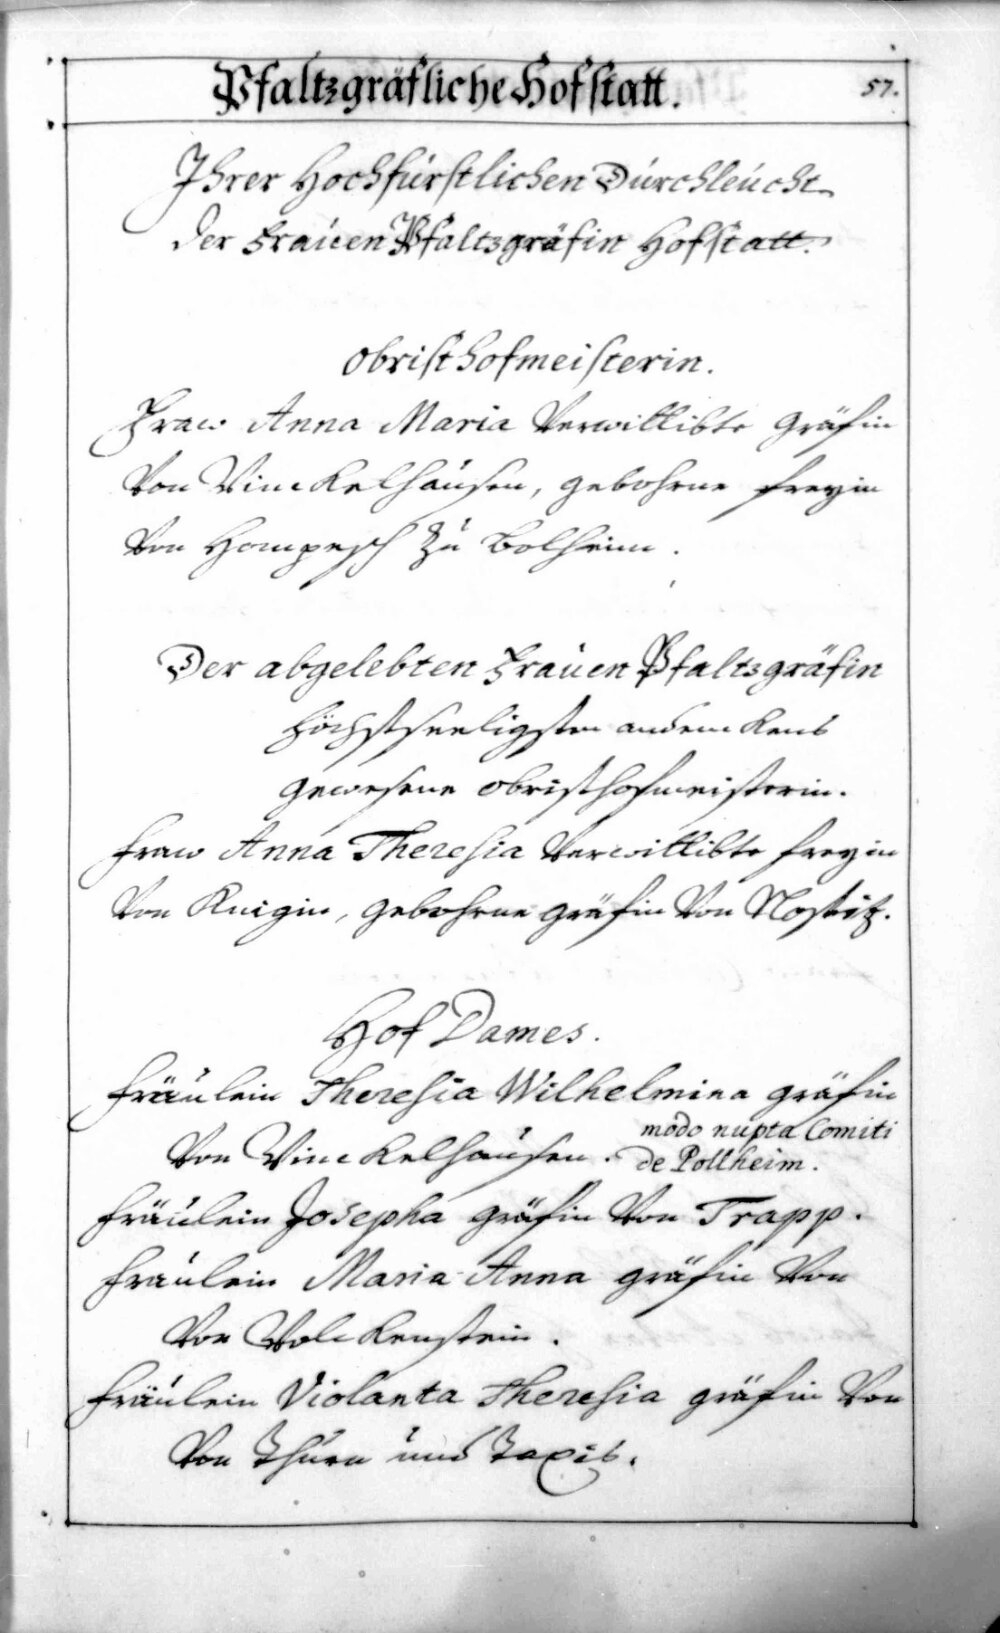 Pfaltzgräfliche Hofstatt.
57.
Ihrer Hochfürstlichen Dürchleücht
der Fraüen Pfaltzgräfin Hofstatt.
Obristhofmeisterin.
Fraw Anna Maria Verwittibte Gräfin
Von Vinckelhaüsen, gebohrne freyin
Von Hompesch zü Bolheim.
Der abgelebten Fraüen Pfaltzgräfin
höchstseeligsten andenckens
gewesene Obristhofmeisterin.
Fraw Anna Theresia Verwittibte freyin
Von Knigin, gebohrne gräfin Von Nostitz.
Hof Dames.
Fräülein Theresia Wilhelmina gräfin
Von Vinckelhaüsen. modo nupta Comiti
de Pollheim.
Fräülein Josepha gräfin Von Trapp.
Fraülein Maria Anna gräfin Von
Von Wolckenstein.
Fräülein Violanta Theresia gräfin Von
Von Thürn und Taxis.